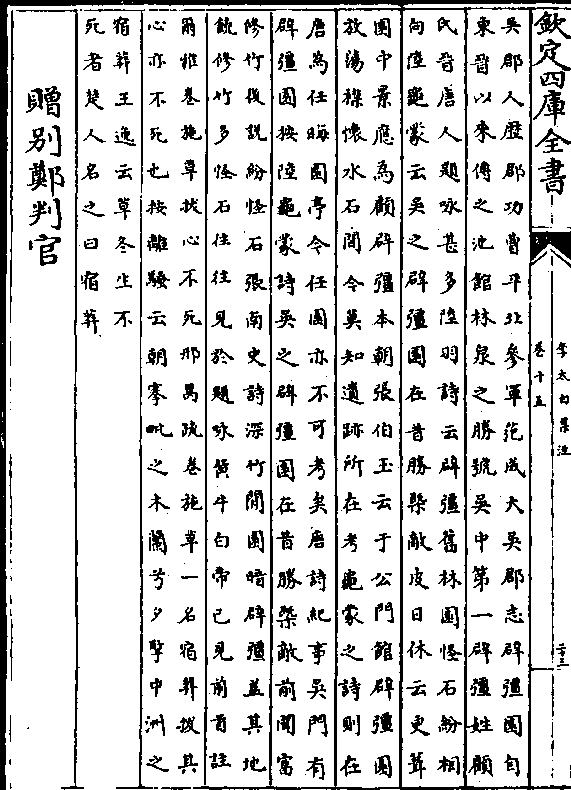 欽定四庫全書
李太白集注
卷十五
二十三
吳郡人歴郡功曹平北參軍范成大吳郡志辟疆園自
東晉以來傳之池館林泉之勝號吳中第一辟疆姓顧
氏晉唐人題咏甚多陸羽詩云辟疆舊林園怪石紛相
向陸龜蒙云吳之辟疆園在昔勝槩敵皮日休云更葺
園中景應為顧辟疆本朝張伯玉云于公門館辟疆園
放蕩襟懷水石間今莫知遺跡所在考龜蒙之詩則在
唐為任晦園亭今任園亦不可考矣唐詩紀事吳門有
辟疆園按陸龜蒙詩吳之辟疆園在昔勝槩敵前聞富
修竹後説紛怪石張南史詩深竹閒園暗辟疆葢其地
饒修竹多怪石徃徃見於題咏黄牛白帝已見前首註
爾雅卷施草拔心不死邢昺疏卷施草一名宿莽拔其
心亦不死也按離騷云朝搴阰之木蘭兮夕擥中洲之
宿莽王逸云草冬生不
死者楚人名之曰宿莽
贈別鄭判官